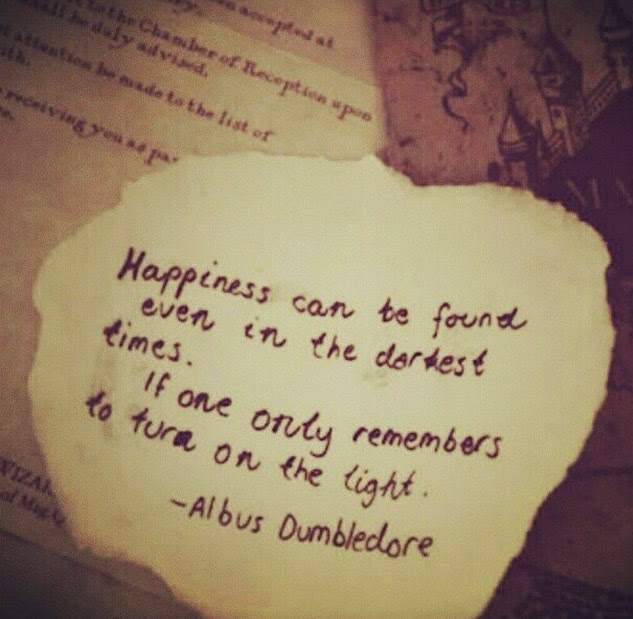 accepted at
to the Chamber of Reception upon
be duly advised.
attention be made to the list of
receiving you as
Happiness can be found
even in the darkest
times.
If one only remembers
to turn on the light.
-Albus Dumbledore
of